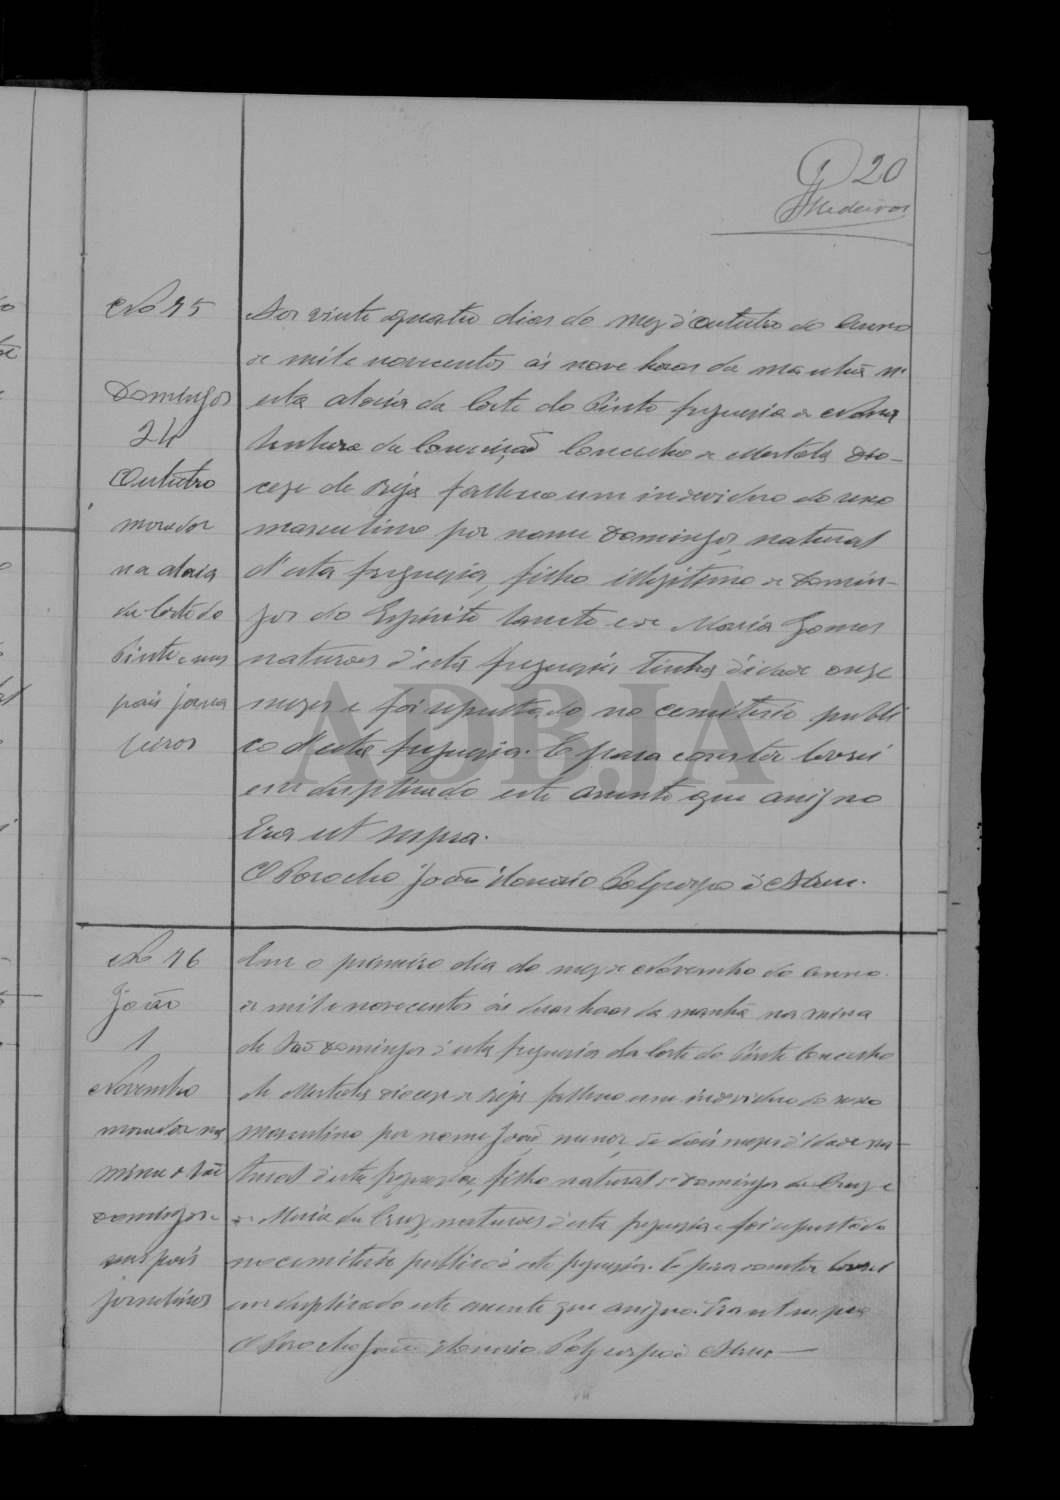 20
Medeiros
Nº 95
Domingos
24
Outubro
morador
na aldeia
da Corte do
Pinto e seus
pais jorna
leiros
Aos vinte e quatro dias do mez d'Outubro do anno
de mil e novecentos ás nove horas da manhã n'
esta aldeia da Corte do Pinto freguezia de Nossa
Senhora da Conceição Concelho de Mertola Dio-
ceze de Beja falleceu um individuo do sexo
masculino por nome Domingos, natural
d'esta freguezia, filho illegitimo de Domin-
gos do Espirito Santo e de Maria Gomes
naturaes d'esta freguezia Tinha d'idade onze
mezes e foi sepultado no cemiterio publi
co d'esta freguezia. E para constar lavrei
em duplicado este assento que assigno
Era ut supra.
O Parocho João Policarpo d'Abreu.
Nº 96
João
1
Novembro
morador na
mina de São
Domingos e
seus pais
jornaleiros
Em o primeiro dia do mez de Novembro do anno
de mil e novecentos ás duas horas da manhã na mina
de São Domingos d'esta freguezia da Corte do Pinto Concelho
de Mertola diocese de Beja falleceu um individuo do sexo
masculino por nome João, menor, de dois mezes d'idade na-
tural d'esta freguezia, filho natural de Domingos da Cruz e
de Maria da Cruz, naturaes d'esta freguezia e foi sepultado
no cemiterio publico d'esta freguezia. E para constar lavrei
em duplicado este assento que assigno. Era ut supra
O Parocho João Policarpo d'Abreu
ADBJA